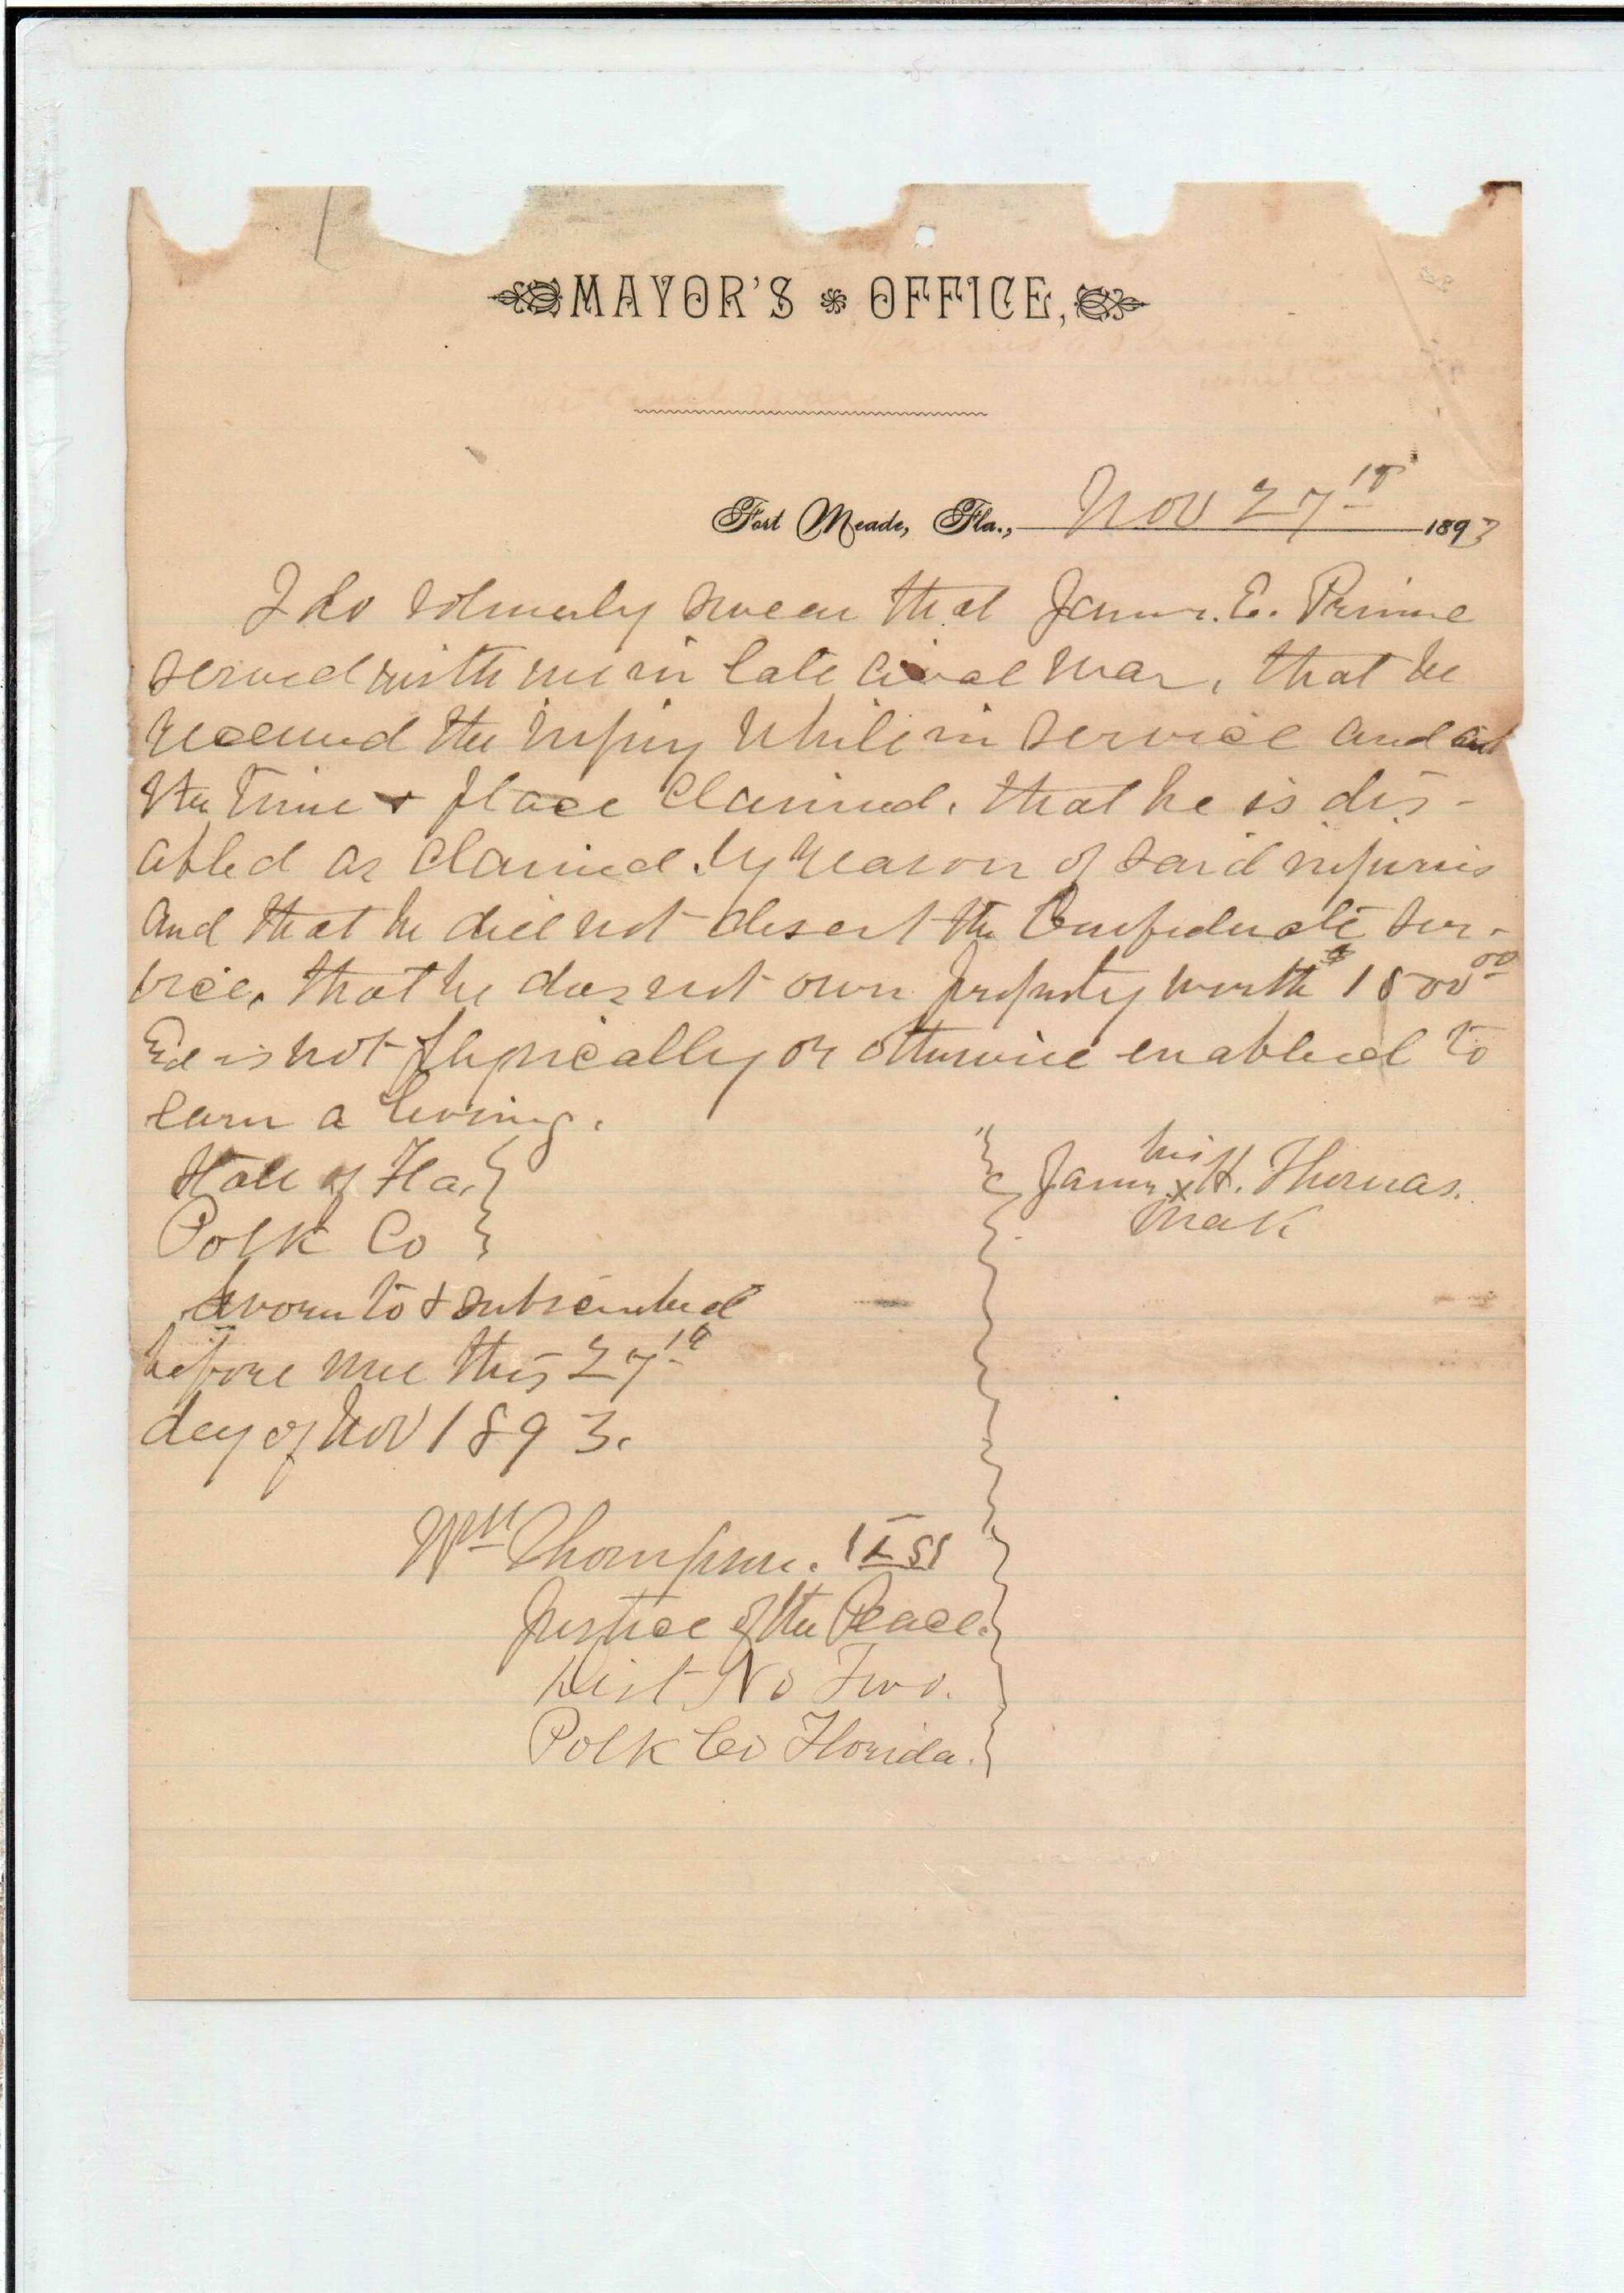 MAYOR'S OFFICE,
Fort Meade, Fla., Nov 27th 1893
I do solemnly swear that James. E. Prine
served with me in late civil war, that he
received the injury while in service and at
the time & place claimed, that he is dis-
abled as claimed by reason of said injuries
and that he did not desert the Confederate ser-
vice, that he does not own property worth $1500 00
is not physically or otherwise enabled to
earn a living.
State of Fla.
Polk Co
his
James x H. Thomas.
mark
Sworn to & subscribed
before me this 27th
day of Nov 1893.
Wm Thompson.
Justice of the Peace.
Dist No Two.
Polk Co Florida.